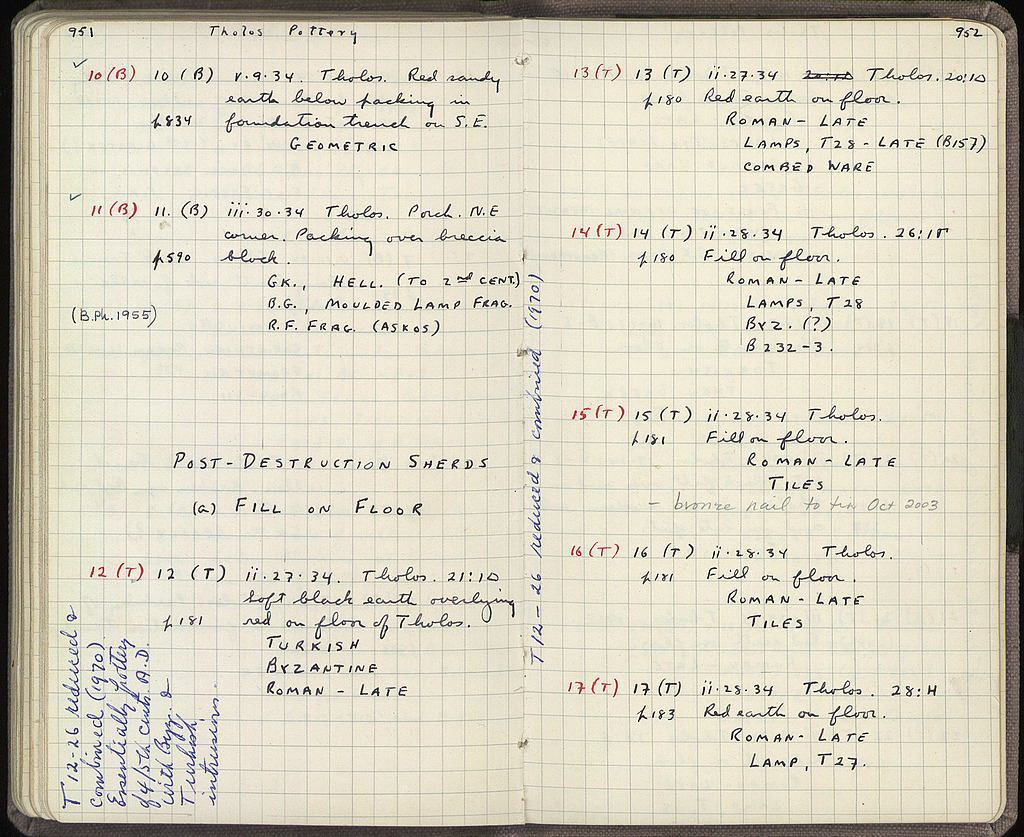 951
Tholos Pottery
✓
10 (B) 10 (B) v.9.34. Tholos. Red sandy
earth below packing in
p834 foundation trench on S.E.
GEOMETRIC
✓
11 (B) 11. (B) iii.30.34 Tholos. Porch. N.E
corner. Packing over breccia
p590 block.
GK., HELL. (TO 2nd CENT.)
B.G., MOULDED LAMP FRAG.
(B.Ph. 1955)
R.F. FRAG. (ASKOS)
POST-DESTRUCTION SHERDS
(a) FILL ON FLOOR
12 (T) 12 (T) ii.27.34. Tholos. 21:ΙΔ
Soft black earth overlying
p181 red on floor of Tholos.
TURKISH
BYZANTINE
ROMAN - LATE
T 12-26 reduced &
combined (1970)
Essentially pottery
of 4/5th cents. A.D.
with Byz. &
Turkish
intrusions.
T 12-26 reduced & combined (1970)
952
13 (T) 13 (T) ii.27.34 Tholos. 20:ΙΔ
p180 Red earth on floor.
ROMAN-LATE
LAMPS, T28-LATE (B157)
COMBED WARE
14 (T) 14 (T) ii.28.34 Tholos. 26:ΙΓ
p180 Fill on floor.
ROMAN-LATE
LAMPS, T28
BYZ. (?)
B 232-3.
15 (T) 15 (T) ii.28.34 Tholos.
p181 Fill on floor.
ROMAN-LATE
TILES
- bronze nail to tin Oct 2003
16 (T) 16 (T) ii.28.34 Tholos.
p181 Fill on floor.
ROMAN-LATE
TILES
17 (T) 17 (T) ii.28.34 Tholos. 28:H
p183 Red earth on floor.
ROMAN-LATE
LAMP, T27.